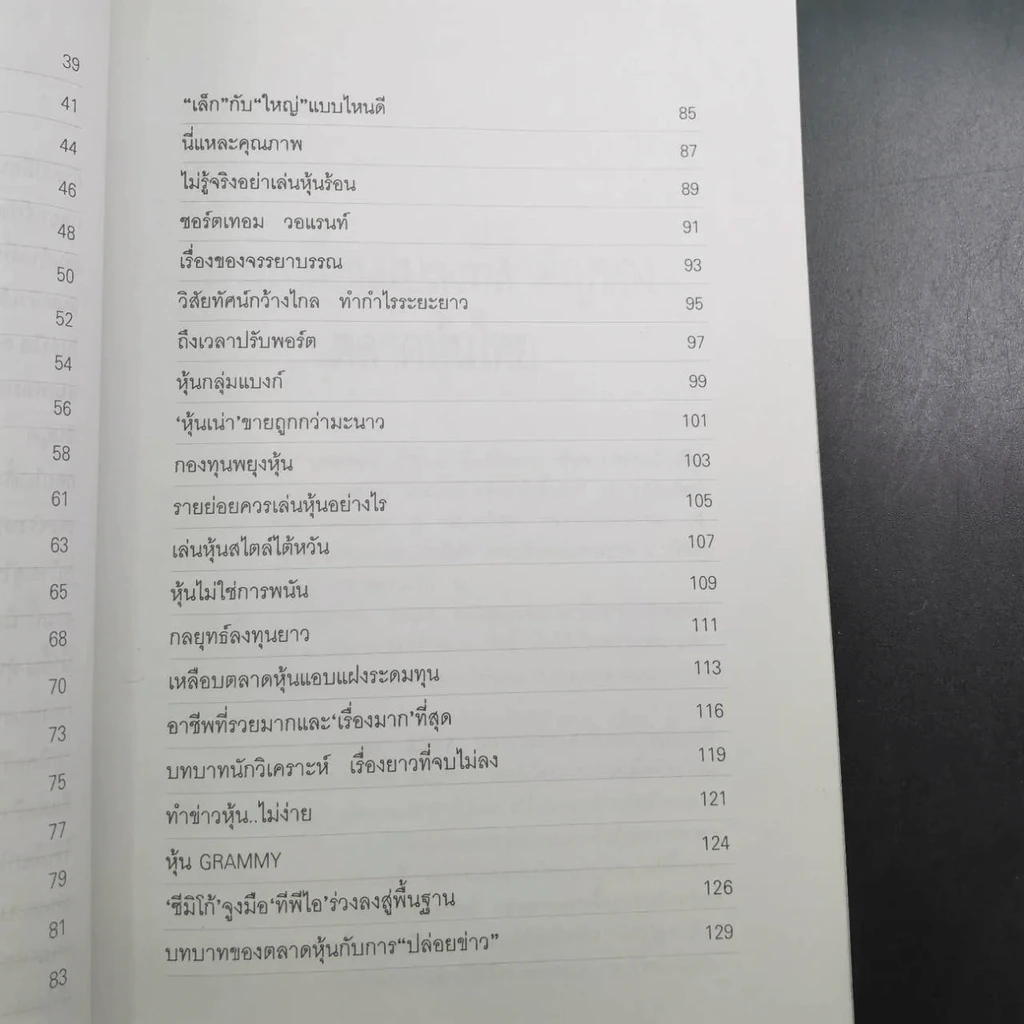 39
41
44
46
48
50
52
54
56
58
61
63
65
68
70
73
75
77
79
81
83
“เล็ก”กับ“ใหญ่”แบบไหนดี 85
นี่แหละคุณภาพ 87
ไม่รู้จริงอย่าเล่นหุ้นร้อน 89
ชอร์ตเทอม วอแรนท์ 91
เรื่องของจรรยาบรรณ 93
วิสัยทัศน์กว้างไกล ทำกำไรระยะยาว 95
ถึงเวลาปรับพอร์ต 97
หุ้นกลุ่มแบงก์ 99
‘หุ้นเน่า’ขายถูกกว่ามะนาว 101
กองทุนพยุงหุ้น 103
รายย่อยควรเล่นหุ้นอย่างไร 105
เล่นหุ้นสไตล์ไต้หวัน 107
หุ้นไม่ใช่การพนัน 109
กลยุทธ์ลงทุนยาว 111
เหลือบตลาดหุ้นแอบแฝงระดมทุน 113
อาชีพที่รวยมากและ‘เรื่องมาก’ที่สุด 116
บทบาทนักวิเคราะห์ เรื่องยาวที่จบไม่ลง 119
ทำข่าวหุ้น..ไม่ง่าย 121
หุ้น GRAMMY 124
‘ซีมิโก้’จูงมือ‘ทีพีไอ’ร่วงลงสู่พื้นฐาน 126
บทบาทของตลาดหุ้นกับการ“ปล่อยข่าว” 129